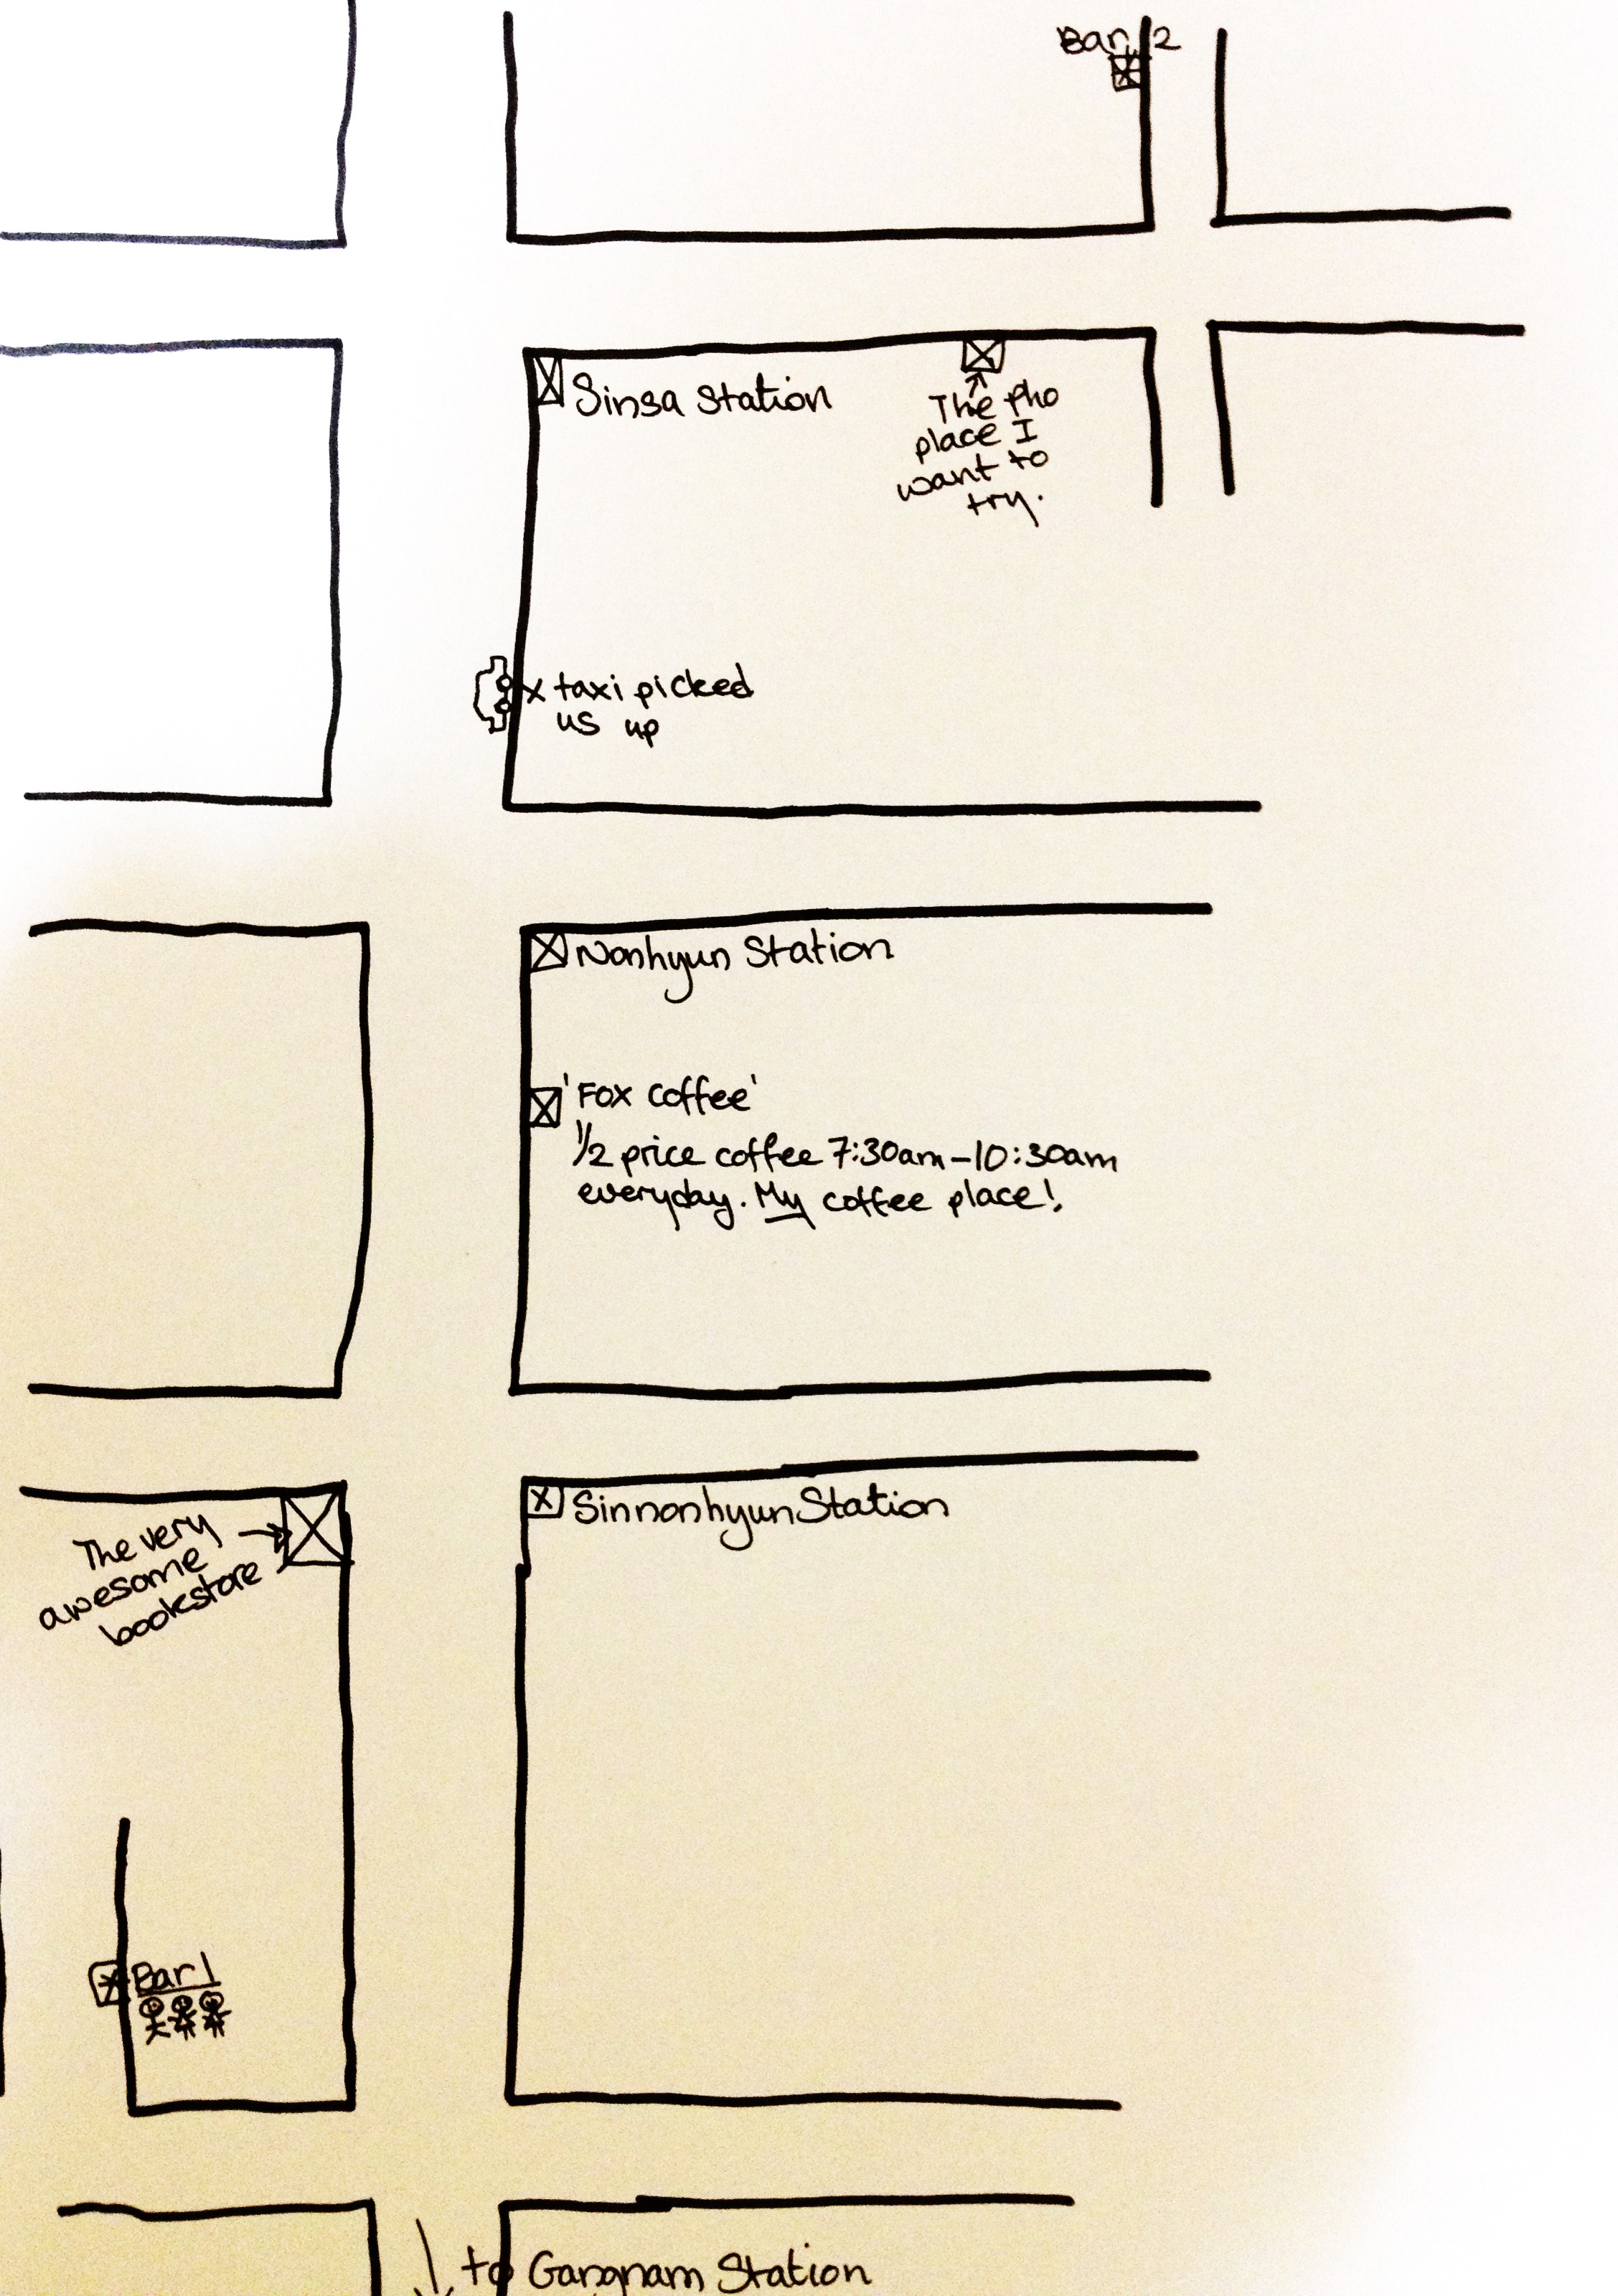 Bar 2
Sinsa Station
The Pho
place I
want to
try.
x taxi picked
us up
Nonhyun Station
'Fox Coffee'
1/2 price coffee 7:30am-10:30am
everyday. My coffee place!
Sinnonhyun Station
The very
awesome
bookstore
Bar 1
to Gangnam Station